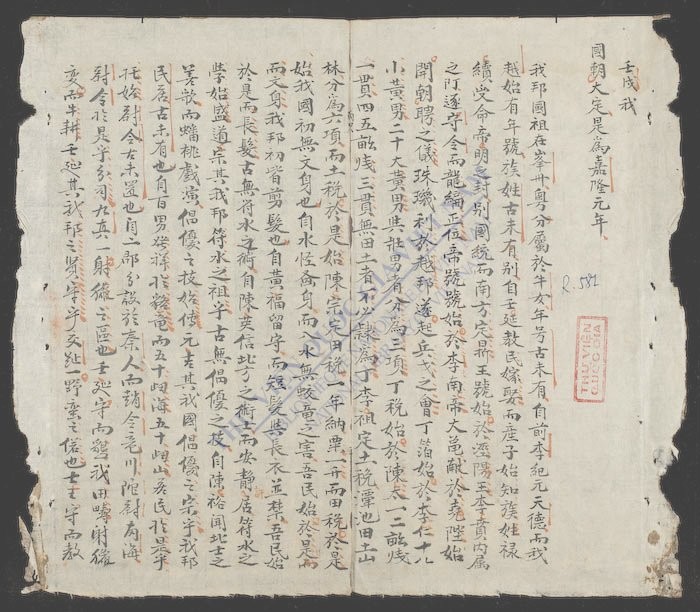 壬戌我
國朝大定是為嘉隆元年
我邦國祖在峯州粵分屬於牛女年号古未有自前李紀元天德而我
越始有年號族姓古未有別自壬延教民嫁娶而產子始知族姓祿
續受命帝明之封別國統而南方定
王號始於
陽王李賁內屬
之
遂守令而龍編正位帝號始於李南帝大
獻於堯陛始
開朝聘之儀珠璣利於越邦遂起兵戈之會丁
始於李仁十八
小黃男二十大黃男與壯男有分為三項丁税始於陳太一二畝
一貫四五畝
三貫無田土者不公
為丁李祖定土税潭池田土山
林分為六項而土税於是始陳宗定田税一年納粟一升而田税於是
始我國初無文身也自水怪
身而入水無蛟童之害吾民始於是而
而文身我邦初皆剪髮也自黃福留守而短髮與長衣並禁吾民始
於是而長髮古無符水之術自陳英信北方之術士而安靜居符水之
學始盛道宗其我邦符水之祖乎古無倡優之技自陳裕聞北士之
善歌而蟠桃戲演倡優之技始傳元吉其我國倡優之宗乎我邦
民居古未有也自百男發祥於
竜而五十歸海五十歸山夷民於是乎
托始尉令古未置也自二部分設於秦人而趙令
川
尉南海
尉令於是乎分司九真一射獵之區也壬延守而
我田疇射獵
變而牛耕壬延其我邦之賢守乎交趾一野蛮之俗也士王守而教
R.582
THƯ VIỆN
QUỐC GIA